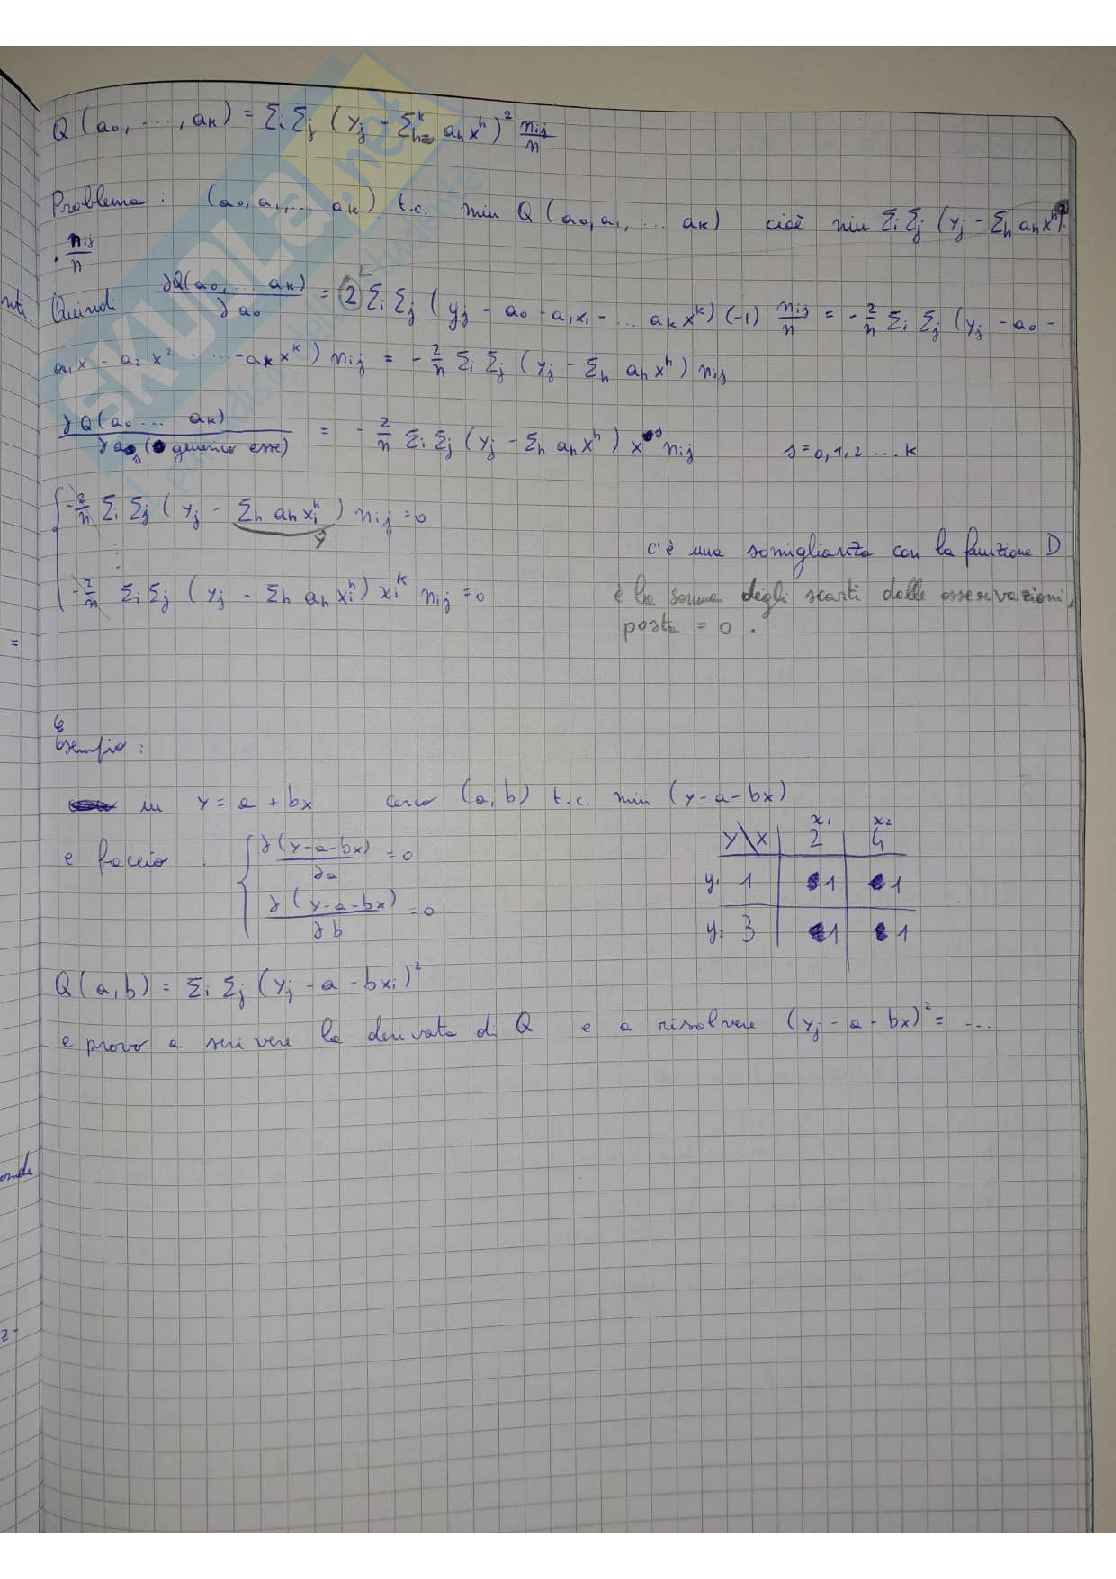 Q(a₀, ..., aₖ) = Σᵢ Σⱼ (yⱼ - Σₕ₌₀ᵏ aₕxʰ)² nᵢⱼ/n
Problema: (a₀, a₁, ... aₖ) t.c. min Q(a₀, a₁, ... aₖ) cioè min Σᵢ Σⱼ (yⱼ - Σₕ aₕxʰ)²
· nᵢⱼ/n
Quindi ∂Q(a₀, ... aₖ)/∂a₀ = 2 Σᵢ Σⱼ (yⱼ - a₀ - a₁x₁ - ... aₖxᵏ)(-1) nᵢⱼ/n = -2/n Σᵢ Σⱼ (yⱼ - a₀ -
a₁x - a₂x² ... - aₖxᵏ) nᵢⱼ = -2/n Σᵢ Σⱼ (yⱼ - Σₕ aₕxʰ) nᵢⱼ
∂Q(a₀ ... aₖ)/∂aₛ (generico esse) = -2/n Σᵢ Σⱼ (yⱼ - Σₕ aₕxʰ) xˢ nᵢⱼ s = 0, 1, 2 .... k
-2/n Σᵢ Σⱼ (yⱼ - Σₕ aₕxᵢʰ) nᵢⱼ = 0
ŷ
⋮
c'è una somiglianza con la funzione D
-2/n Σᵢ Σⱼ (yⱼ - Σₕ aₕxᵢʰ) xᵢᵏ nᵢⱼ = 0
è la somma degli scarti dalle osservazioni,
posta = 0.
Esempio:
in y = a + bx cerco (a, b) t.c. min (y-a-bx)
e faccio
∂(y-a-bx)/∂a = 0
∂(y-a-bx)/∂b = 0
x₁ x₂
Y\X 2 4
y. 1 1 1
y. 3 1 1
Q(a, b) = Σᵢ Σⱼ (yⱼ - a - bxᵢ)²
e provo a scrivere la derivata di Q e a risolvere (yⱼ - a - bx)² = ....
SKUOLA.net